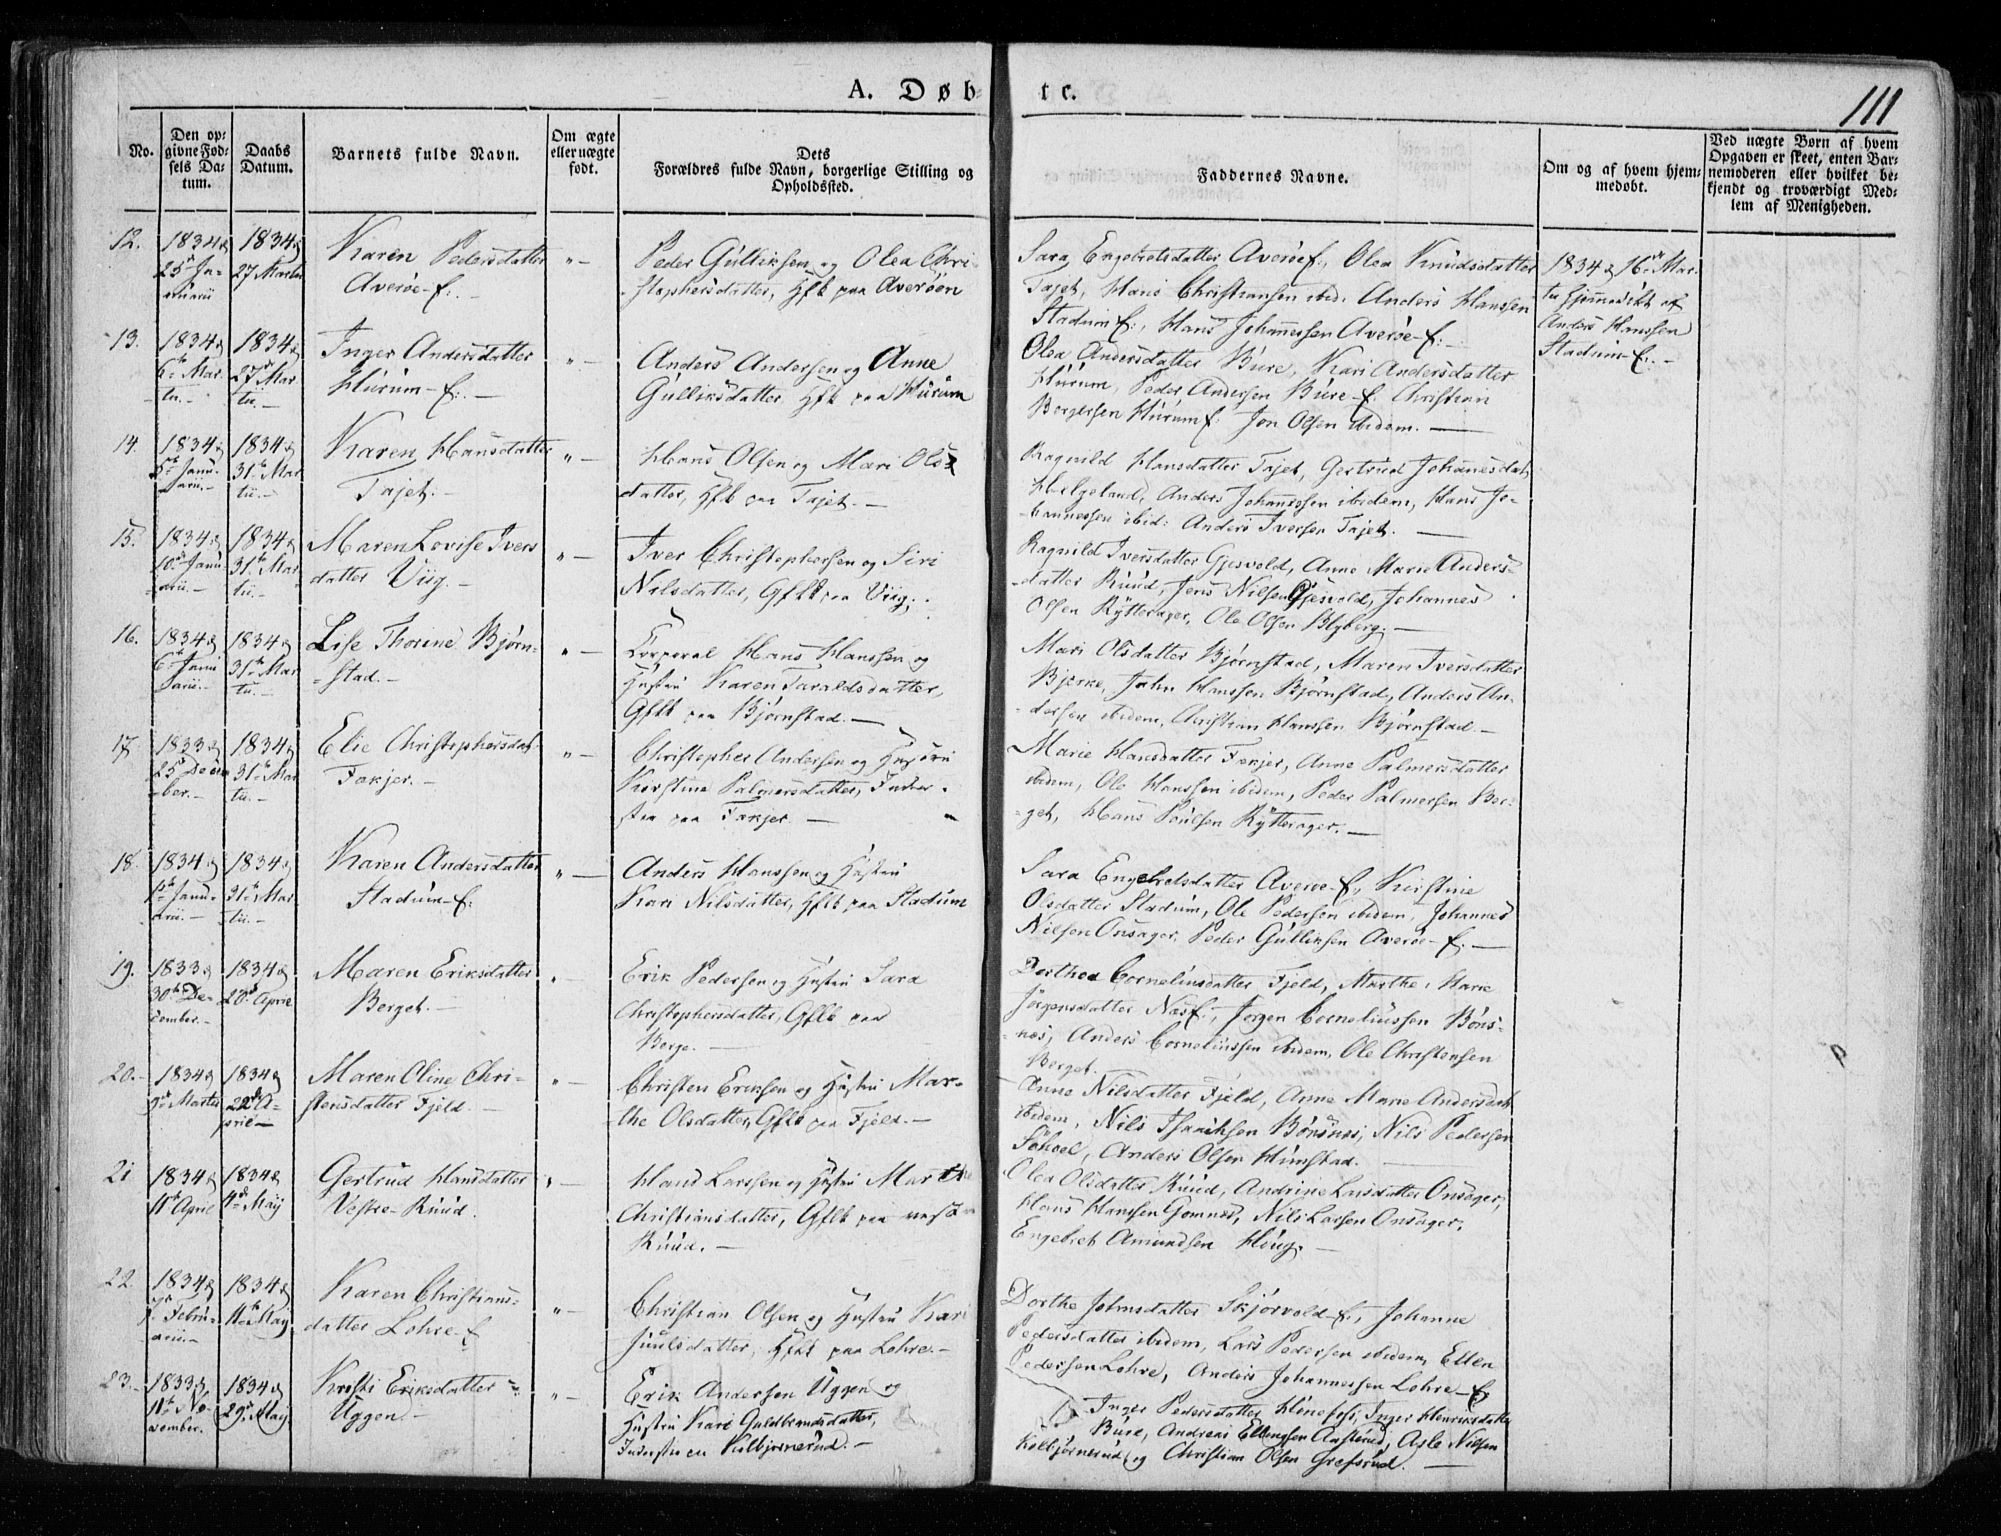 A. Døb-
te.
111
No.
Den op-
givne Fød-
sels Da-
tum.
Daabs
Datum.
Barnets fulde Navn.
Om ægte
eller uægte
født.
Dets
Forældres fulde Navn, borgerlige Stilling og
Opholdssted.
Faddernes Navne.
Om og af hvem hjem-
medøbt.
Ved uægte Børn af hvem
Opgaven er skeet, enten Bar-
nemoderen eller hvilket be-
kjendt og troværdigt Med-
lem af Menigheden.
12.
1834
25 Ja-
nuarii
1834
27 Martii
Karen Pedersdatter
Averøe-E:.-
Peder Gulliksen og Olea Chri-
stophersdatter, Hflk paa Averøen
Sara Engebretsdatter Averøe E:, Olea Knudsdatter
Tajet, Hans Christiansen ibid: Anders Hanssen
Stadum E:, Hans Johannessen Averøe-E:-
1834 16de Mar-
tii hjemmedøbt af
Anders Hanssen
Stadum-E:.-
13.
1834
6te Mar-
tii.
1834
27de Mar-
tii.-
Inger Andersdatter
Hurum-E:.-
Anders Andersen og Anne
Gulliksdatter, Hflk paa Hurum
Olea Andersdatter Bure, Kari Andersdatter
Hurum, Peder Andersen Bure-E: Christian
Borgersen Hurum E: Jon Olsen ibidem.-
14.
1834
5te Janu-
arii.-
1834
31te Mar-
tii.-
Karen Hansdatter
Tajet.-
Hans Olsen og Mari Ols-
datter, Hflk paa Tajet.-
Ragnild Hansdatter Tajet, Gertrud Johanesdat
Helgeland, Anders Johannssen ibidem, Hans Jo-
hannessen ibid: Anders Iversen Tajet.-
15.
1834
10de Janu-
arii.-
1834
31te Mar-
tii.-
Maren Lovise Ivers
datter Viig.-
Iver Christophersen og Siri
Nilsdatter, Gflk paa Viig.
Ragnild Iversdatter Gjesvold, Anne Marie Anders-
datter Ruud, Jens Nilsen Gjesvold, Johannes
Olsen Rytterager, Ole Olsen Blyberg.-
16.
1834
6te Janu-
arii.-
1834
31te Mar-
tii.-
Lise Thorine Bjørn-
stad.-
Corporal Hans Hanssen og
Hustru Karen Taraldsdatter,
Gflk paa Bjørnstad.-
Mari Olsdatter Bjørnstad, Maren Iversdatter
Bjerke, John Hanssen Bjørnstad, Anders An-
dersen ibidem, Christian Hanssen Bjørnstad.-
17.
1833
25 Decem-
ber.-
1834
31te Mar-
tii.-
Elie Christophersdat.
Fækjer.-
Christopher Andersen og Hustru
Kirstine Palmersdatter, Inder-
ster paa Fækjer.-
Marie Hansdatter Fækjer, Anne Palmersdatter
ibidem, Ole Hanssen ibidem, Peder Palmersen Ber-
get, Hans Poulsen Rytterager.-
18.
1834
1te Janu-
arii.-
1834
31te Mar-
tii.-
Karen Andersdatter
Stadum-E:
Anders Hanssen og Hustru
Kari Nilsdatter, Hflk paa Stadum
Sara Engebretsdatter Averøe-E:, Kirstine
Olsdatter Stadum, Ole Pedersen ibidem, Johannes
Nilsen Onsager, Peder Gulliksen Averøe-E:-
19.
1833
30te De-
cember.-
1834
20de April
Maren Eriksdatter
Berget.-
Erik Pedersen og Hustru Sara
Christophersdatter, Gflk paa
Berge.-
Dorthea Corneliusdatter Fjeld, Marthe Marie
Jørgensdatter Næs E:, Jørgen Corneliussen Bøns-
næs, Anders Corneliussen ibidem, Ole Christensen
Berget.
20.-
1834
9de Martii
1834
22de A-
pril-
Maren Oline Chri-
stensdatter Fjeld.-
Christen Eriksen og Hustru Mar-
the Olsdatter, Gflk paa Fjeld.-
Anne Nilsdatter Fjeld, Anne Marie Andersdat
ibidem, Nils Isaaksen Bønsnæs, Nils Pedersen
Sohoel, Anders Olsen Hunstad.
21
1834
11te April
1834
4de May
Gertrud Hansdatter
Vestre-Ruud.
Hans Larssen og Hustru Marthe
Christiansdatter, Gflk paa vestre
Ruud.-
Olea Olsdatter Ruud, Andrine Larsdatter Onsager,
Hans Hanssen Gomnæs, Nils Larsen Onsager,
Engebret Amundsen Houg.-
22.
1834
7de Febru-
arii.-
1834
11te May
Karen Christians-
datter Lohre-E:
Christian Olsen og Hustru Kari
Juulsdatter, Hflk paa Lohre.-
Dorthe Johnsdatter Skjørvold-E:, Johanne
Pedersdatter ibidem, Lars Pedersen ibidem, Ellen
Pedersen Lohre, Anders Johannessen Lohre-E:
23.-
1833
11te No-
vember.
1834
29de May
Kirsti Eriksdatter
Uggen-
Erik Andersen Uggen og
Hustru Kari Guldbrandsdatter,
Inderster en Kulbjørnerud.-
Inger Pedersdatter Hønefoss, Inger Henriksdatter
Bure, Andreas Ellingsen Aasterud, Asle Nilsen
Kolbjørnerud, og Christian Olsen Grefsrud.-